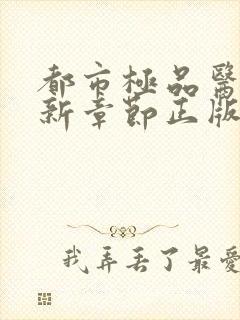 都市極品醫
新章節正版
我弄丟了最愛